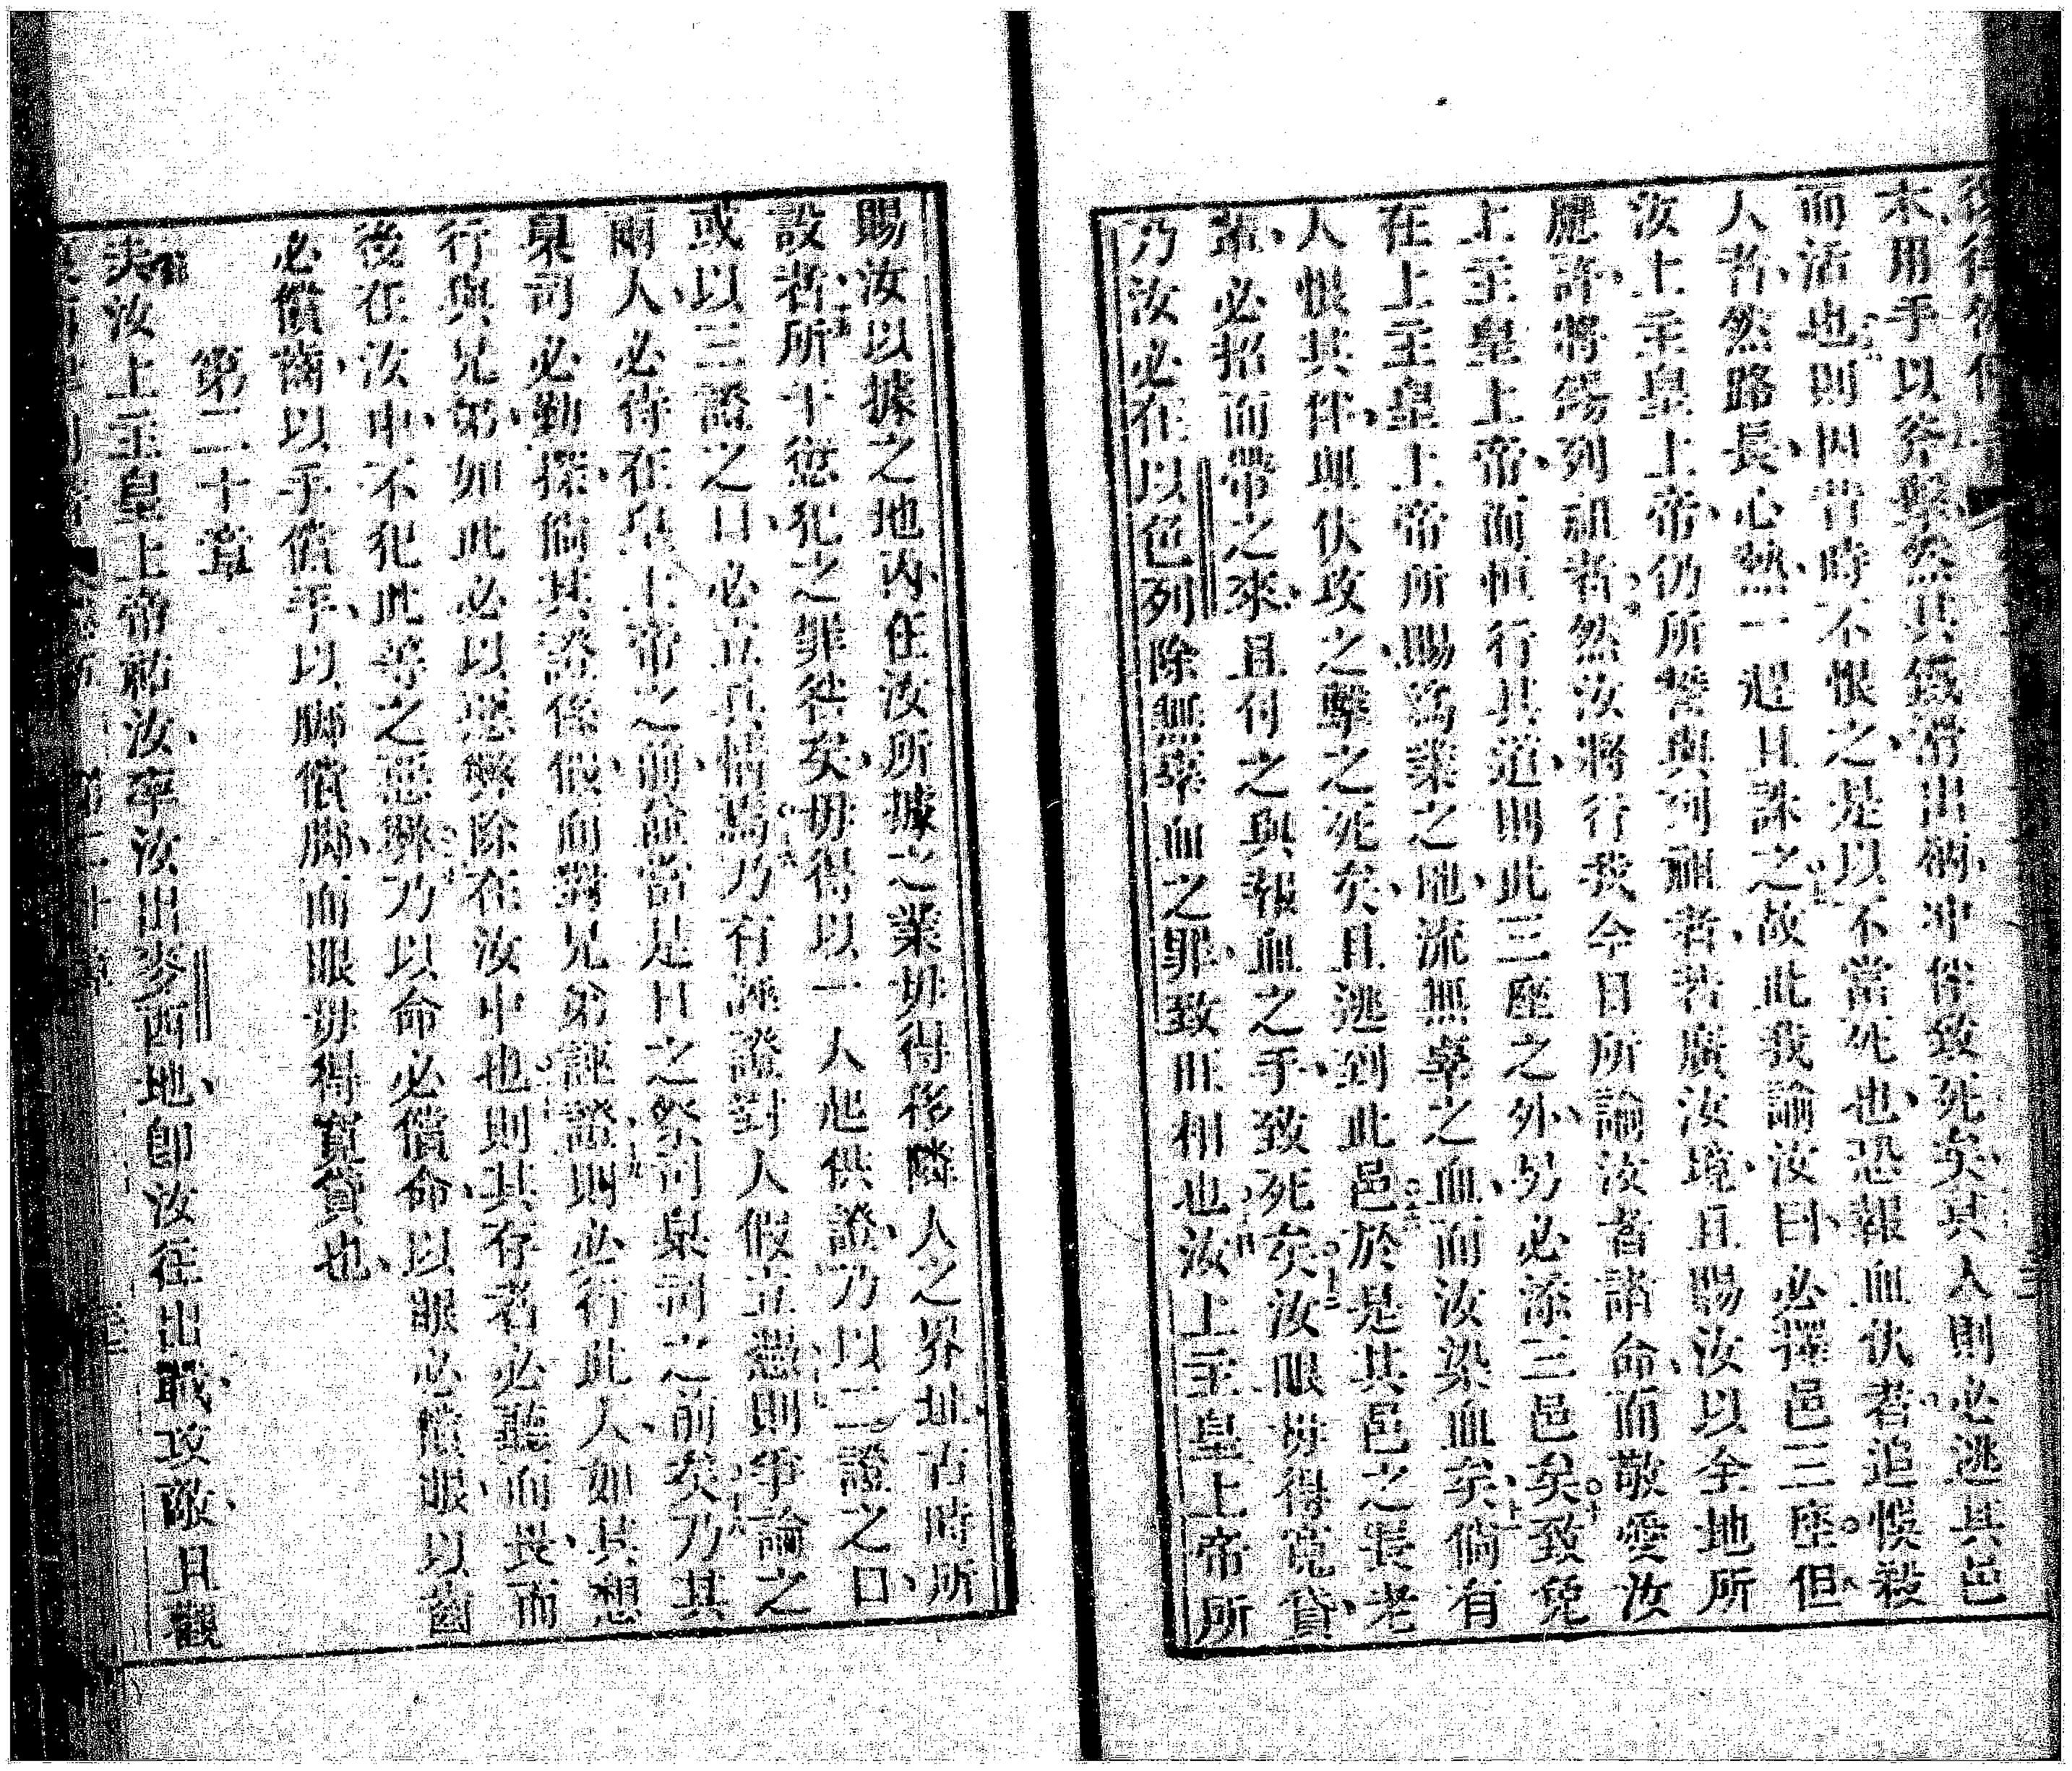 木用手以斧擊然其鐵滑出柄冲伴致死矣其人則必逃其邑
而活也則因昔時不恨之是以不當死也恐報血伙者追悞殺
人者然路長心熱一起且誅之故此我諭汝曰必擇邑三座但
汝上主皇上帝仍所誓與列祖者若廣汝境且賜汝以全地所
許將錫列祖者然汝將行我今日所諭汝者諸命而敬愛汝
上主皇上帝而恒行其道則此三座之外另必添三邑矣致免
在上主皇上帝所賜為業之地流無辜之血而汝染血矣倘有
人恨其伴與伏攻之擊之死矣且逃到此邑於是其邑之長老
輩必招而帶之來且付之與報血之手致死矣汝眼毋得寬貸
乃汝必在以色列除無辜血之罪致旺相也汝上主皇上帝所
賜汝以據之地內在汝所據之業毋得移隣人之界址古時所
設者所干愆犯之罪往矣毋得以一人起供證乃以二證之口
或以三證之口必立其情焉乃有誣證對人假立愆則爭論之
兩人必侍在皇上帝之前並當是日之祭司臬司之前矣乃其
臬司必勤探倘其證係假而對兄弟誣證則必行此人如其想
行與兄弟如此必以惡弊除在汝中也則其存者必聽而畏而
後在汝中不犯此等之惡弊乃以命必償命以眼必償眼以齒
必償齒以手償手以脚償脚而眼毋得寬貸也
第二十章
夫汝上主皇上帝祐汝率汝出麥西地即汝往出戰攻敵且觀